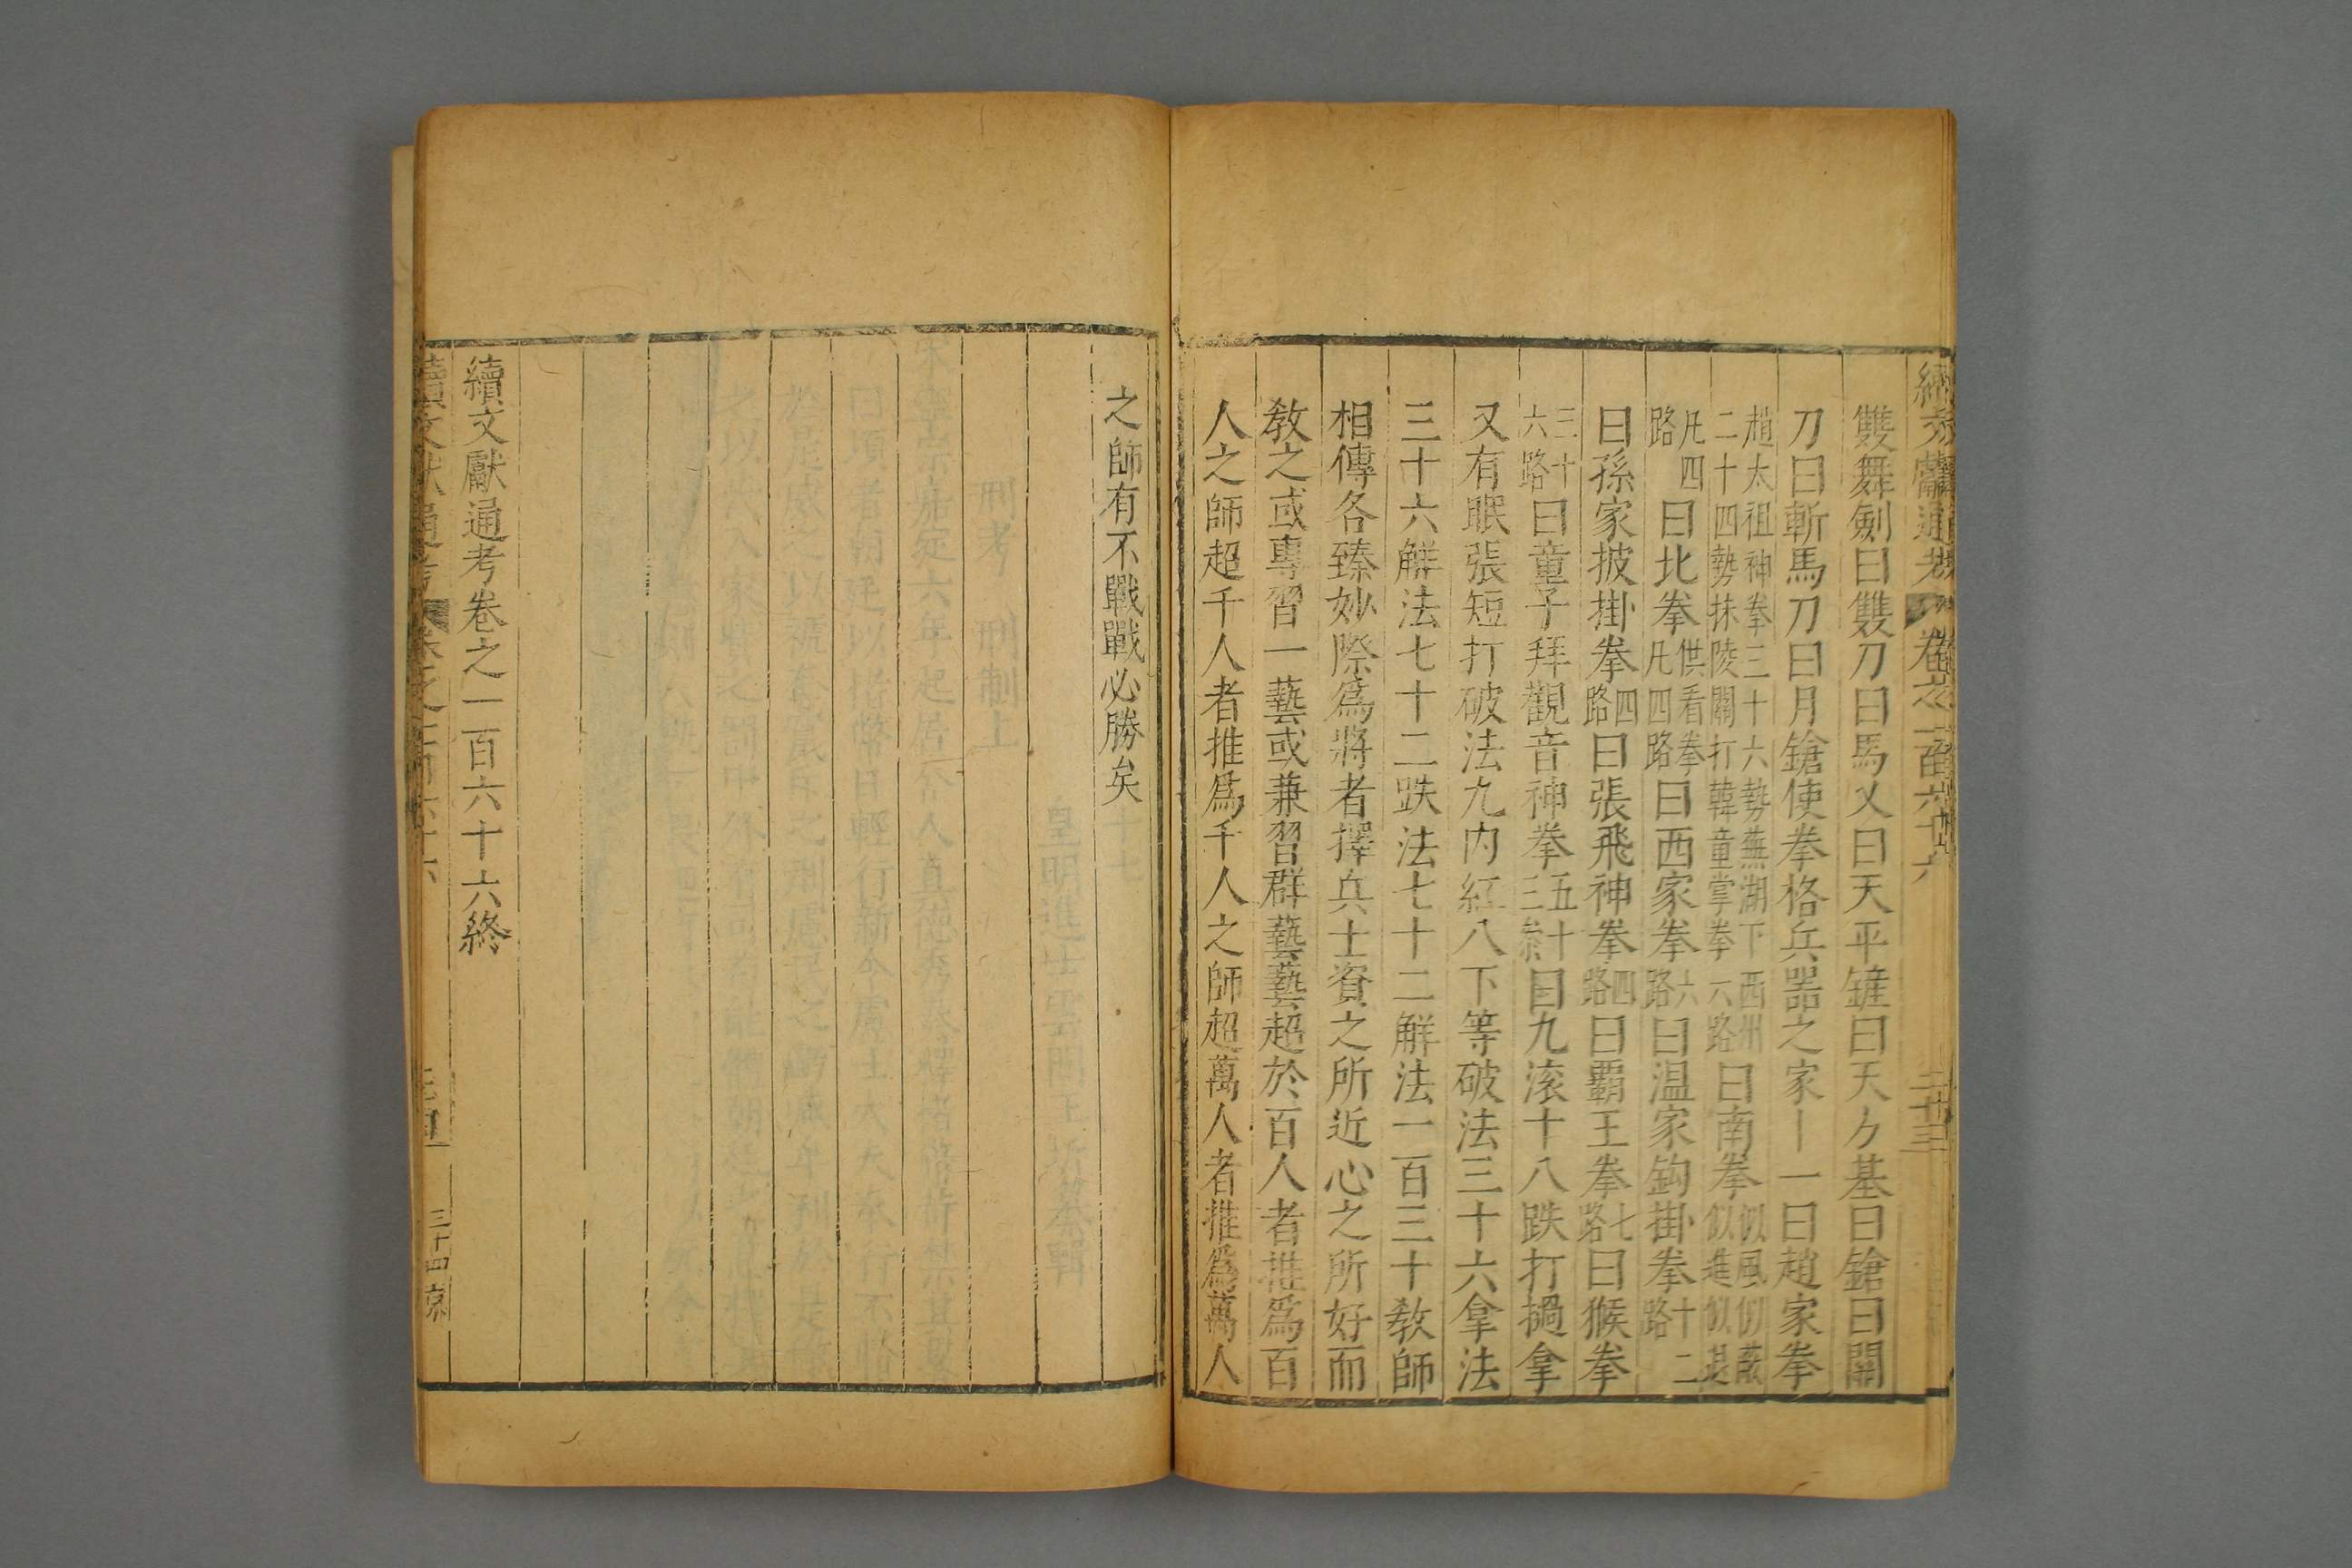 續文獻通考 卷之一百六十六 二十三
雙舞劍曰雙刀曰馬乂曰天平鏟曰天ケ基曰鎗曰關
刀曰斬馬刀曰月鎗使拳格兵噐之家丨一曰趙家拳
趙太祖神拳三十六勢蕪湖下西州
二十四勢抹陵關打韓童掌拳六路
曰南拳
似風似蔽
似進似退
凡四
路
曰北拳
供看拳
凡四路
曰西家拳
六
路
曰温家鈎掛拳
十二
路
曰孫家披掛拳
四
路
曰張飛神拳
四
路
曰覇王拳
七
路
曰猴拳
三十
六路
曰童子拜觀音神拳
五十
三叅
曰九滚十八跌打撾拿
又有眠張短打破法九内紅八下等破法三十六拿法
三十六解法七十二跌法七十二解法一百三十教師
相傳各臻妙際爲將者擇兵士資之所近心之所好而
教之或專習一藝或兼習群藝藝超於百人者推爲百
人之師超千人者推爲千人之師超萬人者推爲萬人
之師有不戰戰必勝矣
續文獻通考卷之一百六十六終
續文獻通考 卷之一百六十六 三十四京